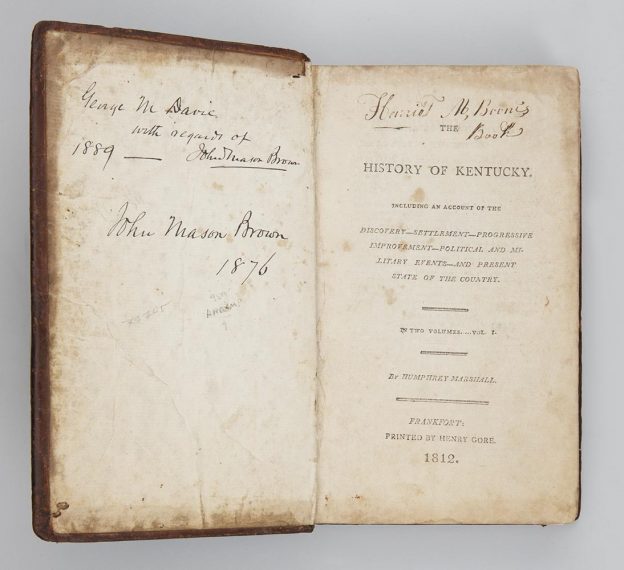 George M Davie
with regards of
1889 — John Mason Brown
John Mason Brown
1876
Harriet M, Boon's
Book
THE
HISTORY OF KENTUCKY.
INCLUDING AN ACCOUNT OF THE
DISCOVERY—SETTLEMENT—PROGRESSIVE
IMPROVEMENT—POLITICAL AND MI-
LITARY EVENTS—AND PRESENT
STATE OF THE COUNTRY.
IN TWO VOLUMES....VOL. I.
BY HUMPHREY MARSHALL.
FRANKFORT:
PRINTED BY HENRY GORE.
1812.